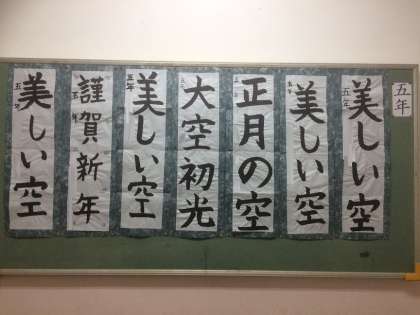 五年
美しい空
五年
美しい空
正月の空
大空初光
美しい空
五年
謹賀新年
美しい空